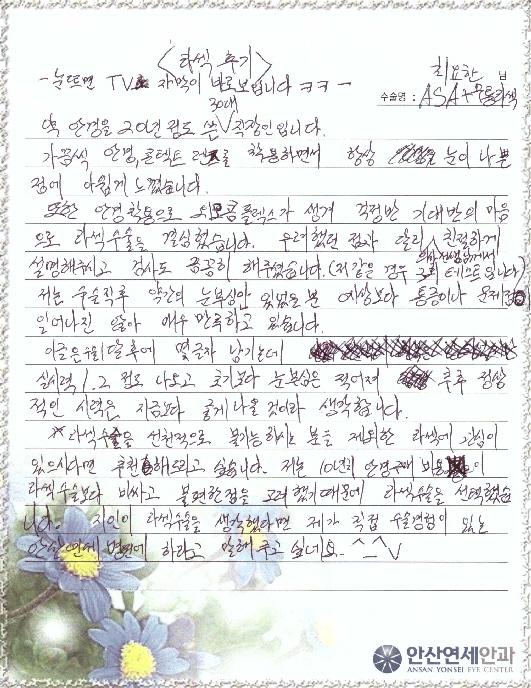 <라섹 후기>
- 눈뜨면 TV 자막이 바로보입니다 ㅋㅋ -
최요한 님
수술명 : ASA+무통라섹
약 안경을 20년 정도 쓴 30대 직장인입니다.
가끔씩 안경, 콘텍트 렌즈를 착용하면서 항상 눈이 나쁜
점에 아쉽게 느꼈습니다.
또한 안경착용으로 외모콤플렉스가 생겨 걱정반 기대반의 마음
으로 라섹수술을 결심했습니다. 우려했던 점과 달리 친절하게
설명해주시고 검사도 꼼꼼히 해주셨습니다. (저 같은 경우 3회 테스트 입니다)
저는 수술직후 약간의 눈부심만 있었을 뿐 예상보다 통증이나 문제점이
일어나진 않아 매우 만족하고 있습니다.
몇글자 남기는데
실시력 1.2 정도 나오고 초기보다 눈부심은 적어져 추후 정상
적인 시력은 지금보다 좋게 나올 것이라 생각합니다.
* 라섹수술을 선천적으로 불가능하시는 분을 제외한 라섹에 관심이
있으시다면 추천해드리고 싶습니다. 저는 10년치 안경 비용이
라섹수술보다 비싸고 불편한점을 고려했기때문에 라섹수술을 선택했습
니다. 지인이 라섹수술을 생각했다면 제가 직접 수술경험이 있는
안산연세 병원에 하라고 말해주고 싶네요. ^_^V
안산연세안과
ANSAN YONSEI EYE CENTER